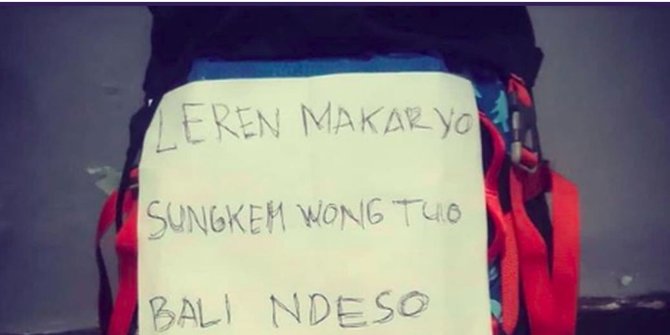 LEREN MAKARYO
SUNGKEM WONG TUO
BALI NDESO